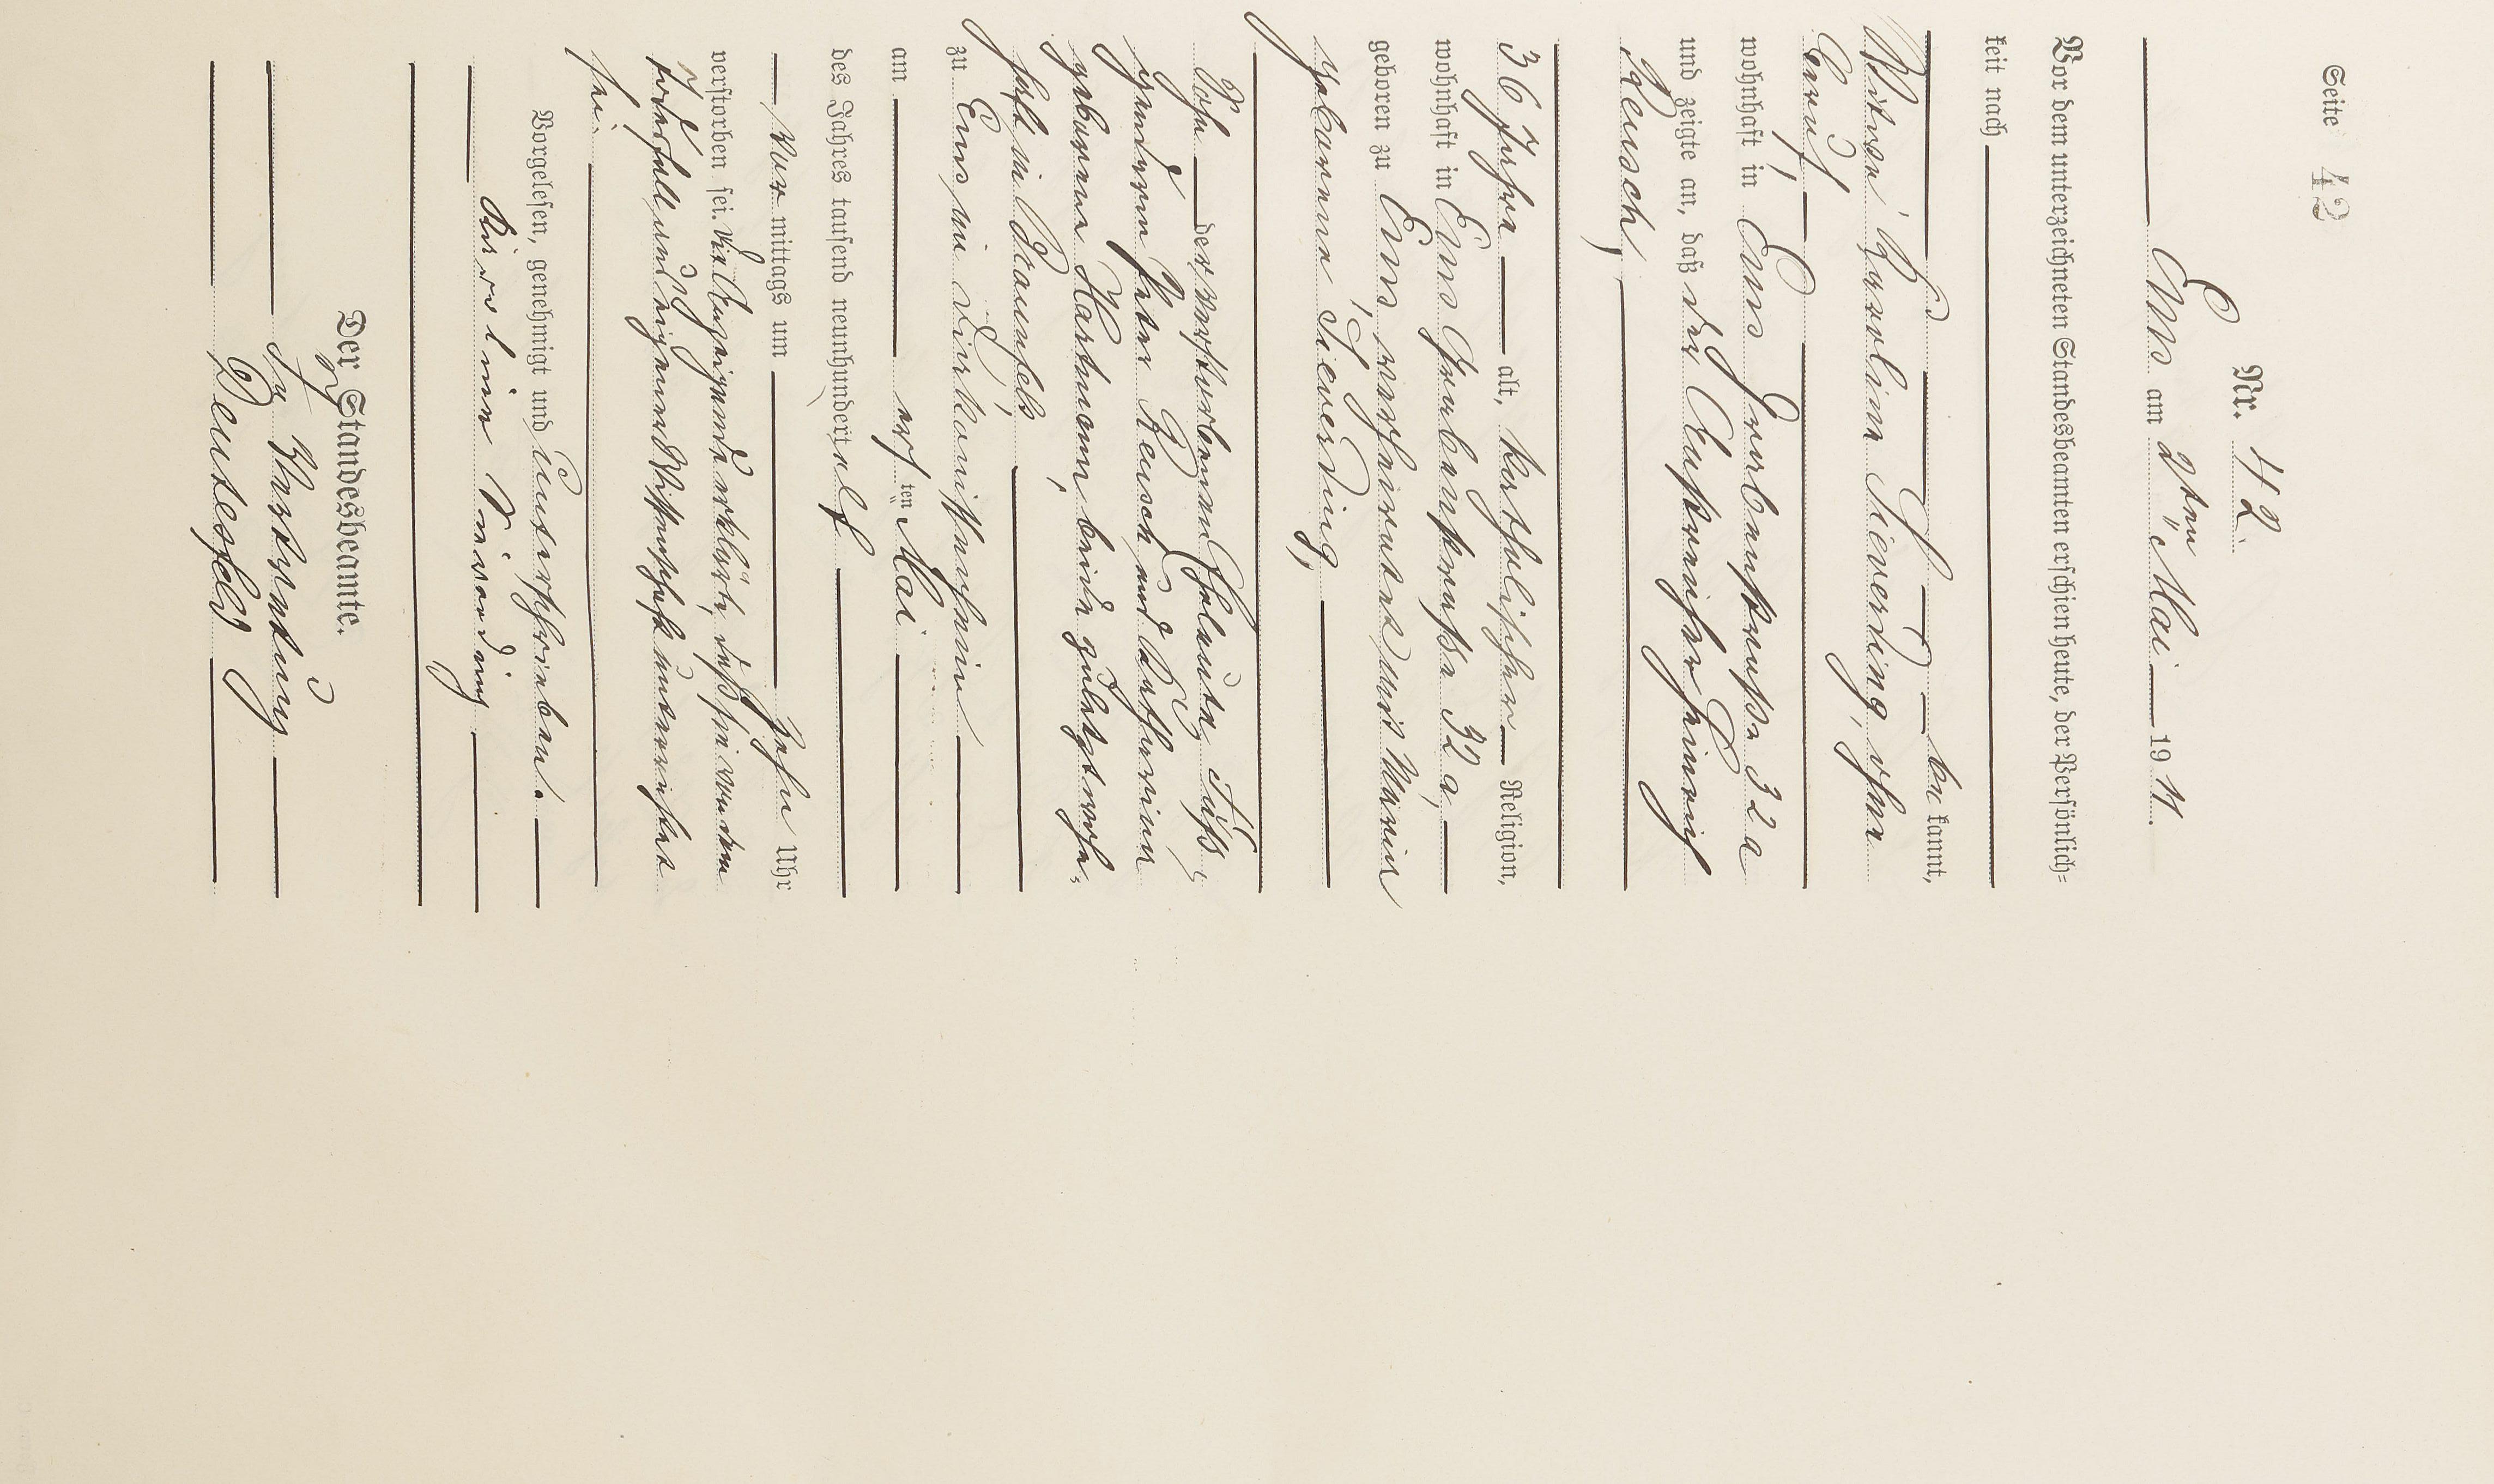 Seite 42
Nr. 42.
Ems am 2ten Mai 1911.
Vor dem unterzeichneten Standesbeamten erschien heute, der Persönlich=
keit nach
be kannt,
Witwe Karoline Sieverding, ohne
Beruf,
wohnhaft in Ems Grabenstraße 32 a
und zeigte an, daß der Anstreicher Heinrich
Reusch,
36 Jahre alt, katholischer Religion,
wohnhaft in Ems Grabenstraße 32 a,
geboren zu Ems verheiratet mit Maria
Johanna Sieverding,
Sohn der verstorbenen Eheleute
Peter Reusch und Katharina
geborene Hartmann beide zuletzt wohn=
haft in Braunfels,
zu Ems im Diakonissenheim
am ersten Mai
des Jahres tausend neunhundert elf
Vor mittags um zehn Uhr
verstorben sei. Die Anzeigende erklärte, daß sie von dem
Todesfall aus eigener Wissenschaft unterrichtet
sei.
Vorgelesen, genehmigt und Unterschrieben.
Karoline Sieverding
Der Standesbeamte.
In Vertretung